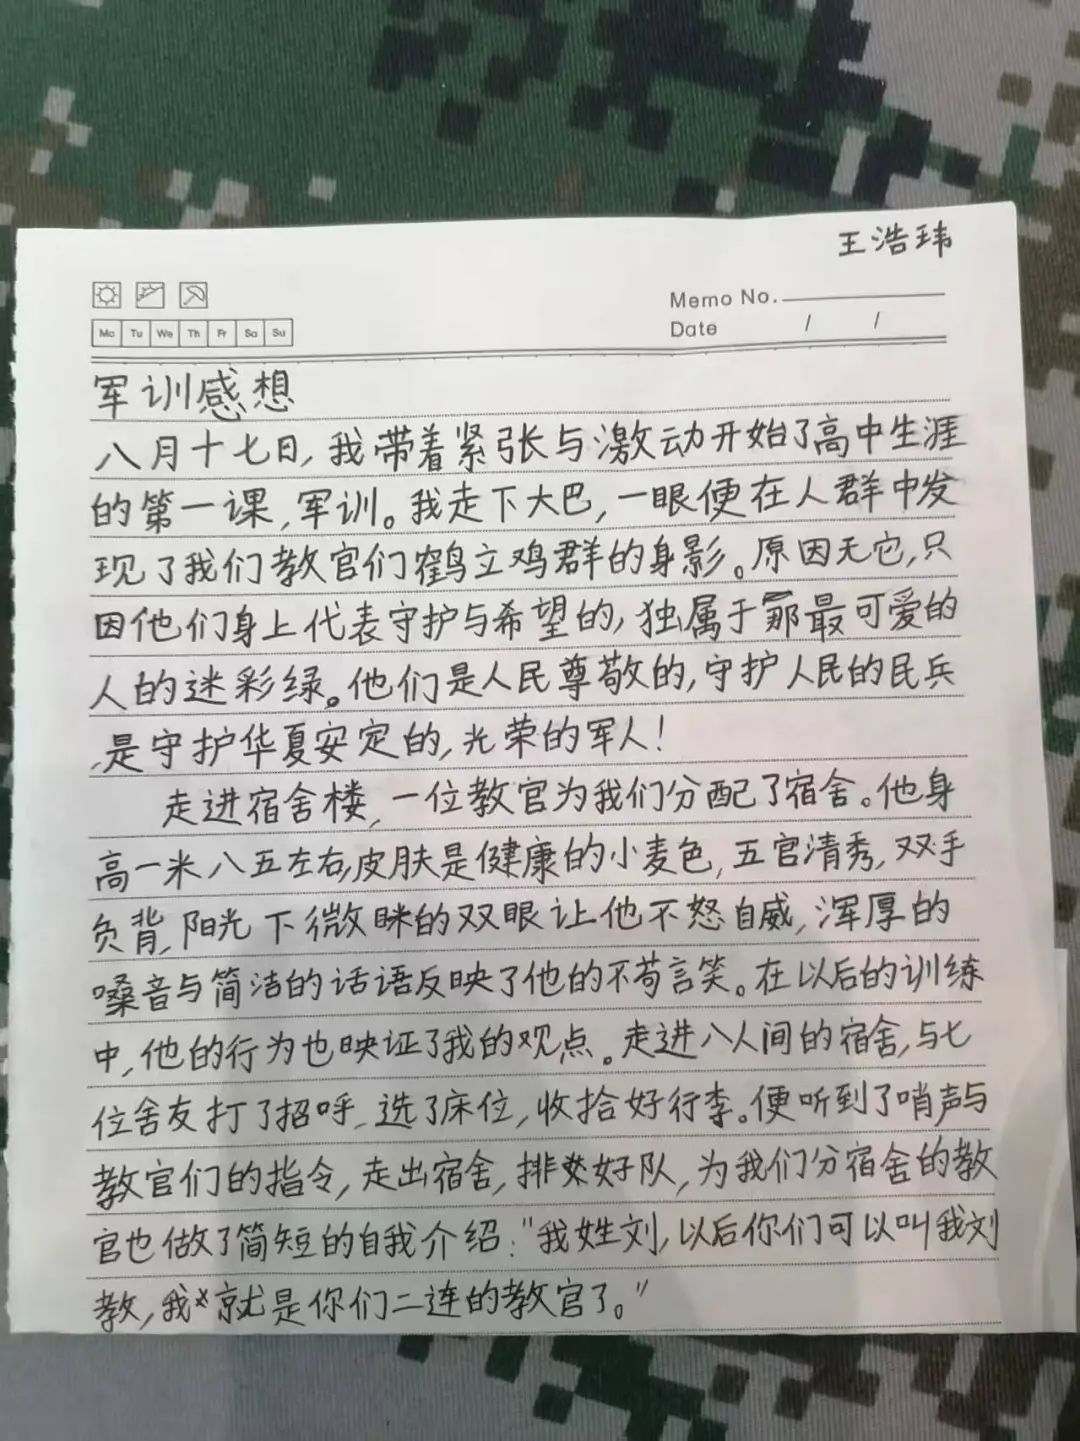 王浩玮
Memo No.
Mo Tu We Th Fr Sa Su
Date / /
军训感想
八月十七日,我带着紧张与激动开始了高中生涯
的第一课,军训。我走下大巴,一眼便在人群中发
现了我们教官们鹤立鸡群的身影。原因无它,只
因他们身上代表守护与希望的,独属于那最可爱的
人的迷彩绿。他们是人民尊敬的,守护人民的民兵
,是守护华夏安定的,光荣的军人!
走进宿舍楼,一位教官为我们分配了宿舍。他身
高一米八五左右,皮肤是健康的小麦色,五官清秀,双手
负背,阳光下微眯的双眼让他不怒自威,浑厚的
嗓音与简洁的话语反映了他的不苟言笑。在以后的训练
中,他的行为也映证了我的观点。走进八人间的宿舍,与七
位舍友打了招呼,选了床位,收拾好行李。便听到了哨声与
教官们的指令,走出宿舍,排好队,为我们分宿舍的教
官也做了简短的自我介绍:"我姓刘,以后你们可以叫我刘
教,我就是你们二连的教官了。"